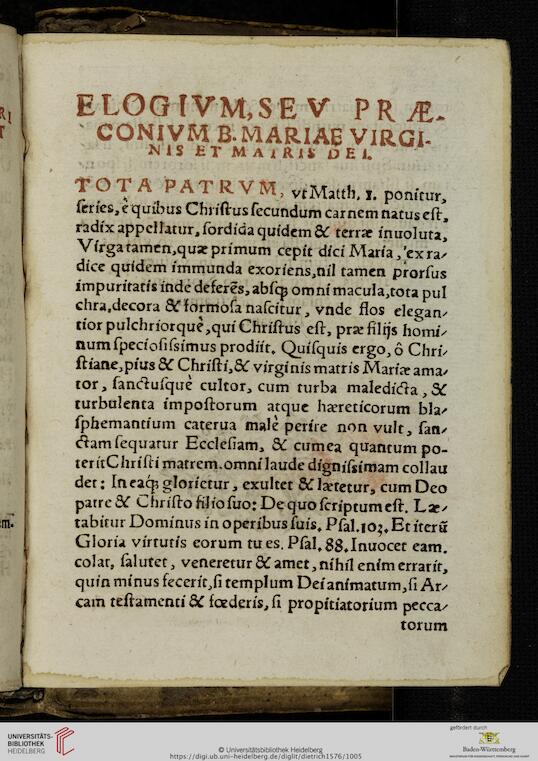 ELOGIVM, SEV PRÆ-
CONIVM B. MARIAE VIRGI-
NIS ET MATRIS DEI.
TOTA PATRVM, vt Matth. 1. ponitur,
ſeries, è quibus Chriſtus ſecundum carnem natus eſt,
radix appellatur, ſordida quidem & terræ inuoluta,
Virga tamen, quæ primum cepit dici Maria, ex ra-
dice quidem immunda exoriens, nil tamen prorſus
impuritatis inde deferẽs, abſq; omni macula, tota pul
chra, decora & formoſa naſcitur, vnde flos elegan-
tior pulchriorquè, qui Chriſtus eſt, præ filijs homi-
num ſpecioſiſsimus prodiit. Quiſquis ergo, ô Chri-
ſtiane, pius & Chriſti, & virginis matris Mariæ ama-
tor, ſanctuſquè cultor, cum turba maledicta, &
turbulenta impoſtorum atque hæreticorum bla-
ſphemantium caterua malè perire non vult, ſan-
ctam ſequatur Eccleſiam, & cum ea quantum po-
terit Chriſti matrem. omni laude digniſsimam collau
det: In eaq; glorietur, exultet & lætetur, cum Deo
patre & Chriſto filio ſuo: De quo ſcriptum eſt. Læ-
tabitur Dominus in operibus ſuis. Pſal. 103. Et iterũ
Gloria virtutis eorum tu es. Pſal. 88. Inuocet eam.
colat, ſalutet, veneretur & amet, nihil enim errarit,
quin minus fecerit, ſi templum Dei animatum, ſi Ar-
cam teſtamenti & fœderis, ſi propitiatorium pecca-
torum
RI
T
em.
UNIVERSITÄTS-
BIBLIOTHEK
HEIDELBERG
© Universitätsbibliothek Heidelberg
https://digi.ub.uni-heidelberg.de/diglit/dietrich1576/1005
gefördert durch
Baden-Württemberg